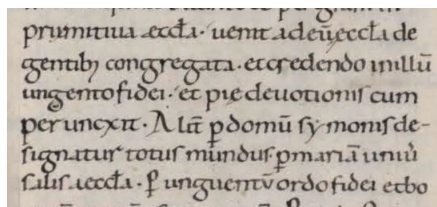 primitiua eccƚa · uenit ad eū eccƚa de
gentibꝫ congregata · et credendo in illū
ungento fidei · et pie deuotionis cum
perunxit · Alit̄ ꝑ domū symonis de-
signatur totus mundus ꝑ mariā uniū
salis aeccƚa · ꝑ unguentū ordo fidei et bo